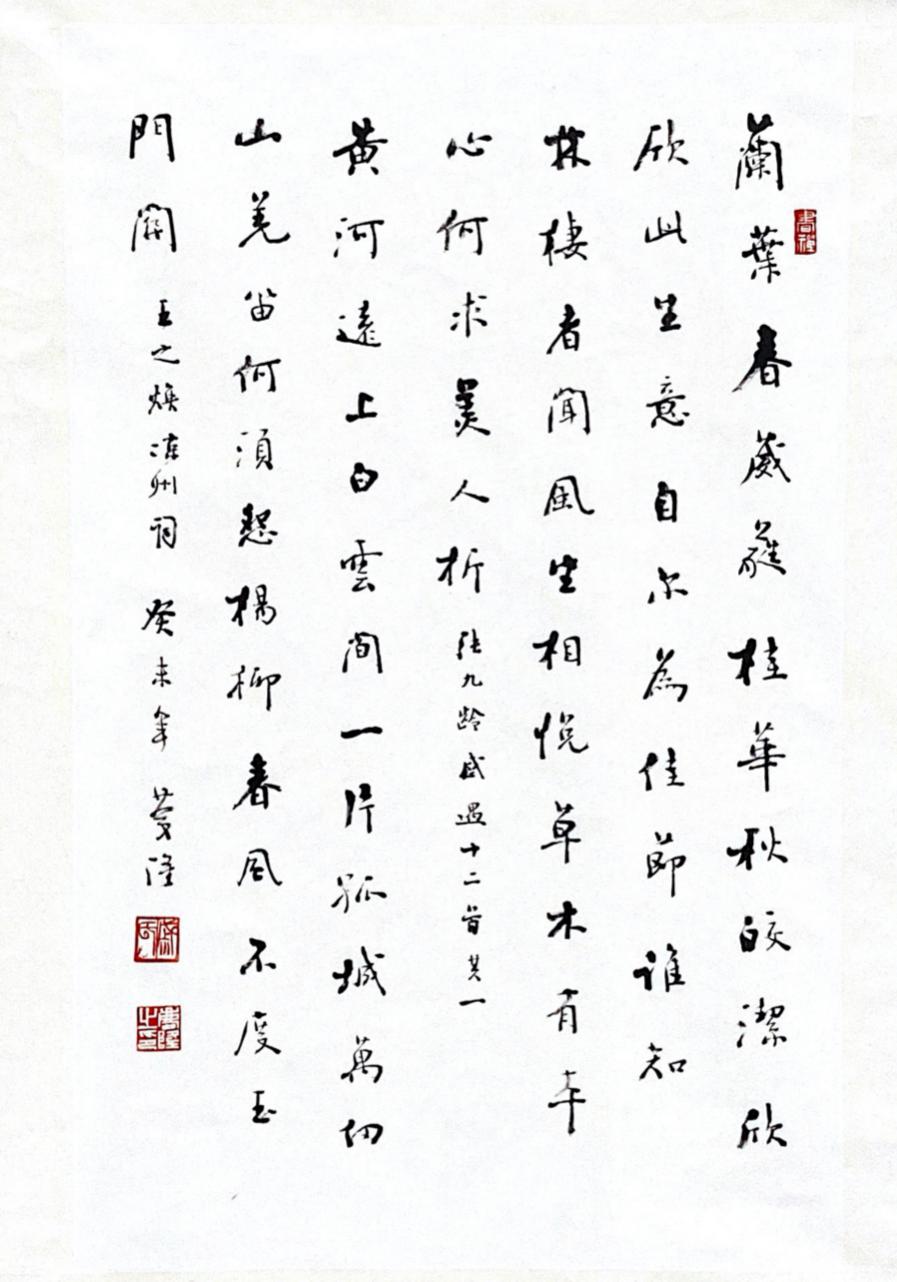 蘭葉春葳蕤桂華秋皎潔欣
欣此生意自尔為佳節誰知
林棲者聞風坐相悅草木有本
心何求美人折 張九齡感遇十二首其一
黃河遠上白雲間一片孤城萬仞
山羌笛何須怨楊柳春風不度玉
門關 王之煥涼州詞 癸未年